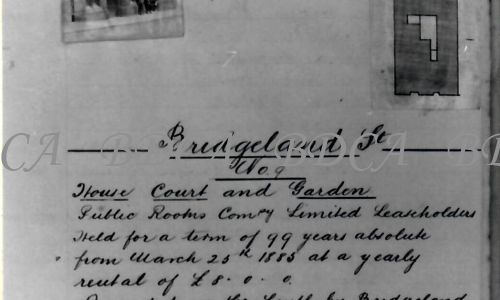 Bridgeland St
No. 9
House Court and Garden
Public Rooms Comny Limited Leaseholders
Held for a term of 99 years absolute
from March 25th 1885 at a yearly
rental of £8. 0. 0.
the South by Bridgeland